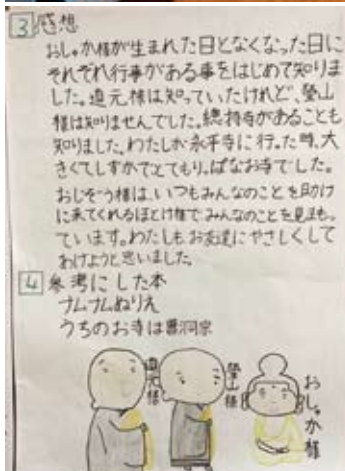 3 感想
おしゃか様が生まれた日となくなった日に
それぞれ行事がある事をはじめて知りま
した。道元様は知っていたけれど、瑩山
様は知りませんでした。總持寺があることも
知りました。わたしが永平寺に行った時、大
きくてしずかでとてもりっぱなお寺でした。
おじぞう様は、いつもみんなのことを助け
に来てくれるほとけ様で、みんなのことを見まも
っています。わたしもお友達にやさしくして
あげようと思いました。
4 参考にした本
ナムナムぬりえ
うちのお寺は曹洞宗
道元様
瑩山様
おしゃか様